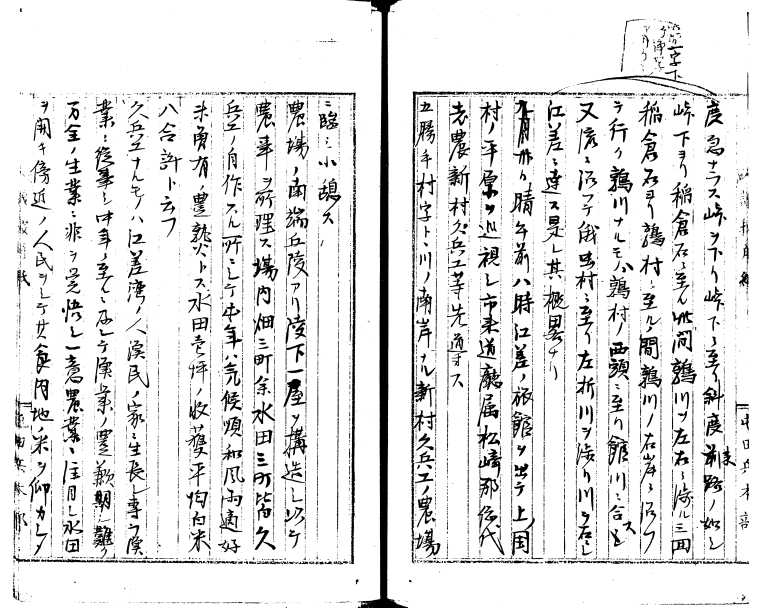 度急ナラス峠ヲ下リ峠下ニ至リ斜度前路ノ如シ
峠下ヨリ稲倉石ニ至ル此間鶉川ヲ左右ニ渉ル三回
稲倉石ヨリ鶉村ニ至ル間鶉川ノ右岸ニ沿フ
テ行ク鶉川ナルモノハ鶉村ノ西頭ニ至リ館川ニ合ス
又流ニ沿フテ俄虫村ニ至リ左折川ヲ渉リ川ヲ右ニシ
江差ニ達ス是レ其概畧ナリ
晴午前八時江差ノ旅館ヲ出テ上ノ国
村ノ平原ヲ巡視シ市来道廳属松崎那代
老農新村久兵エ等先導ス
五勝手村字トノ川ノ南岸ナル新村久兵エノ農場
ニ臨ミ小憩ス
農場ノ南端丘陵アリ陵下一屋ヲ構造シ以テ
農事ヲ所理ス場内畑三町余水田三町皆久
兵エノ自作スル所ニシテ本年ハ気候順和風雨適好
未曽有ノ豊熟トス水田壱坪ノ收獲平均白米
八合許ト云フ
久兵エナルモノハ江差湾ノ人漁民ノ家ニ生長シ専ラ漁
業ニ従事シ中年ノ至ルニ及シテ漁業ノ豊歉期シ難ク
万全ノ生業ニ非ヲ覚悟シ一意農業ニ注目シ水田
ヲ開キ傍近ノ人民ヲシテ其食内地ノ米ヲ仰カシメ
屯田兵本部